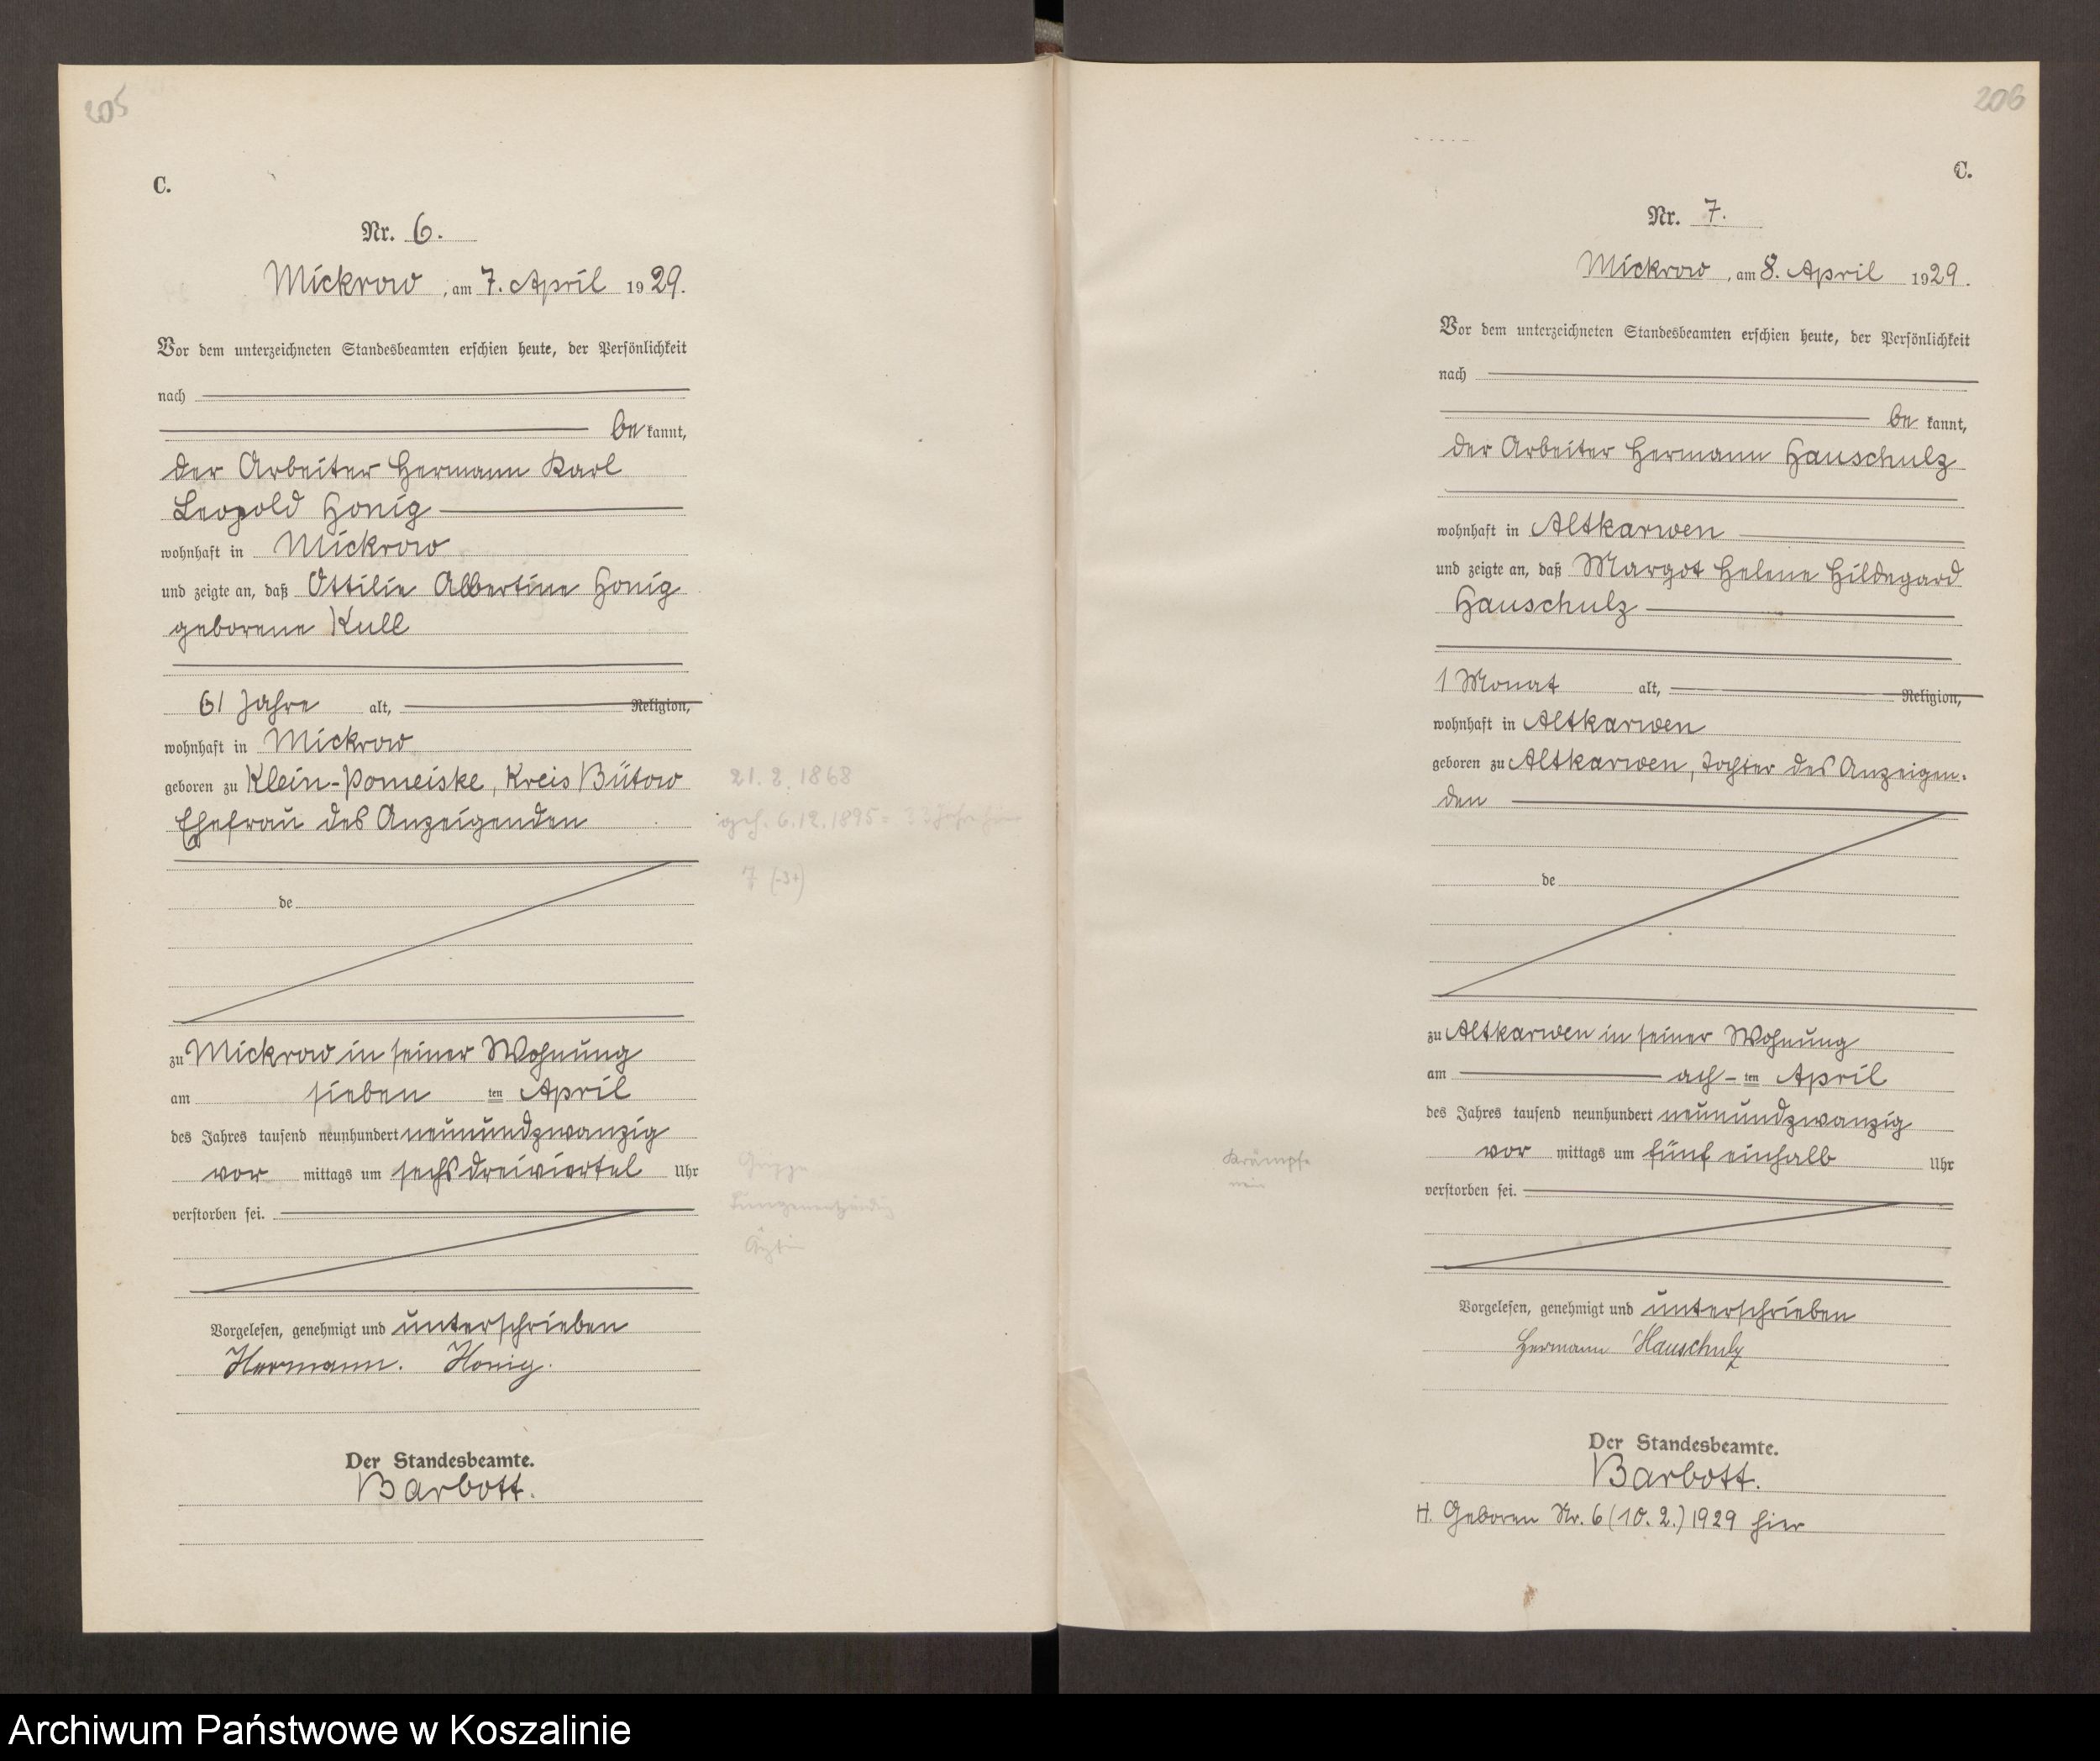 205
C.
Nr. 6.
Mickrow, am 7. April 1929.
Vor dem unterzeichneten Standesbeamten erschien heute, der Persönlichkeit
nach
be kannt,
der Arbeiter Hermann Karl
Leopold Honig
wohnhaft in Mickrow
und zeigte an, daß Ottilie Albertine Honig
geborene Kull
61 Jahre alt, Religion,
wohnhaft in Mickrow
geboren zu Klein-Pomeiske, Kreis Bütow
Ehefrau des Anzeigenden
de
zu Mickrow in seiner Wohnung
am sieben ten April
des Jahres tausend neunhundert neunundzwanzig
vor mittags um sechs dreiviertel Uhr
verstorben sei.
Vorgelesen, genehmigt und unterschrieben
Hermann. Honig.
Der Standesbeamte.
Barbott.
21. 2. 1868
6.12.1895 =
7
Grippe
206
C.
Nr. 7.
Mickrow, am 8. April 1929.
Vor dem unterzeichneten Standesbeamten erschien heute, der Persönlichkeit
nach
be kannt,
der Arbeiter Hermann Hauschulz
wohnhaft in Altkarwen
und zeigte an, daß Margot Helene Hildegard
Hauschulz
1 Monat alt, Religion,
wohnhaft in Altkarwen
geboren zu Altkarwen, Tochter des Anzeigen-
den
de
zu Altkarwen in seiner Wohnung
am ach-ten April
des Jahres tausend neunhundert neunundzwanzig
vor mittags um fünf einhalb Uhr
verstorben sei.
Vorgelesen, genehmigt und unterschrieben
Hermann Hauschulz
Der Standesbeamte.
Barbott.
H. Geboren Nr. 6 (10. 2.) 1929 hier
Krämpfe
nein
Archiwum Państwowe w Koszalinie